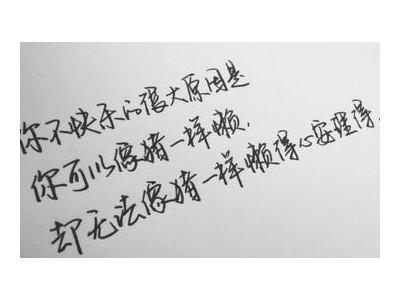 你不快乐的很大原因是
你可以像猪一样懒.
却无法像猪一样懒得心安理得.